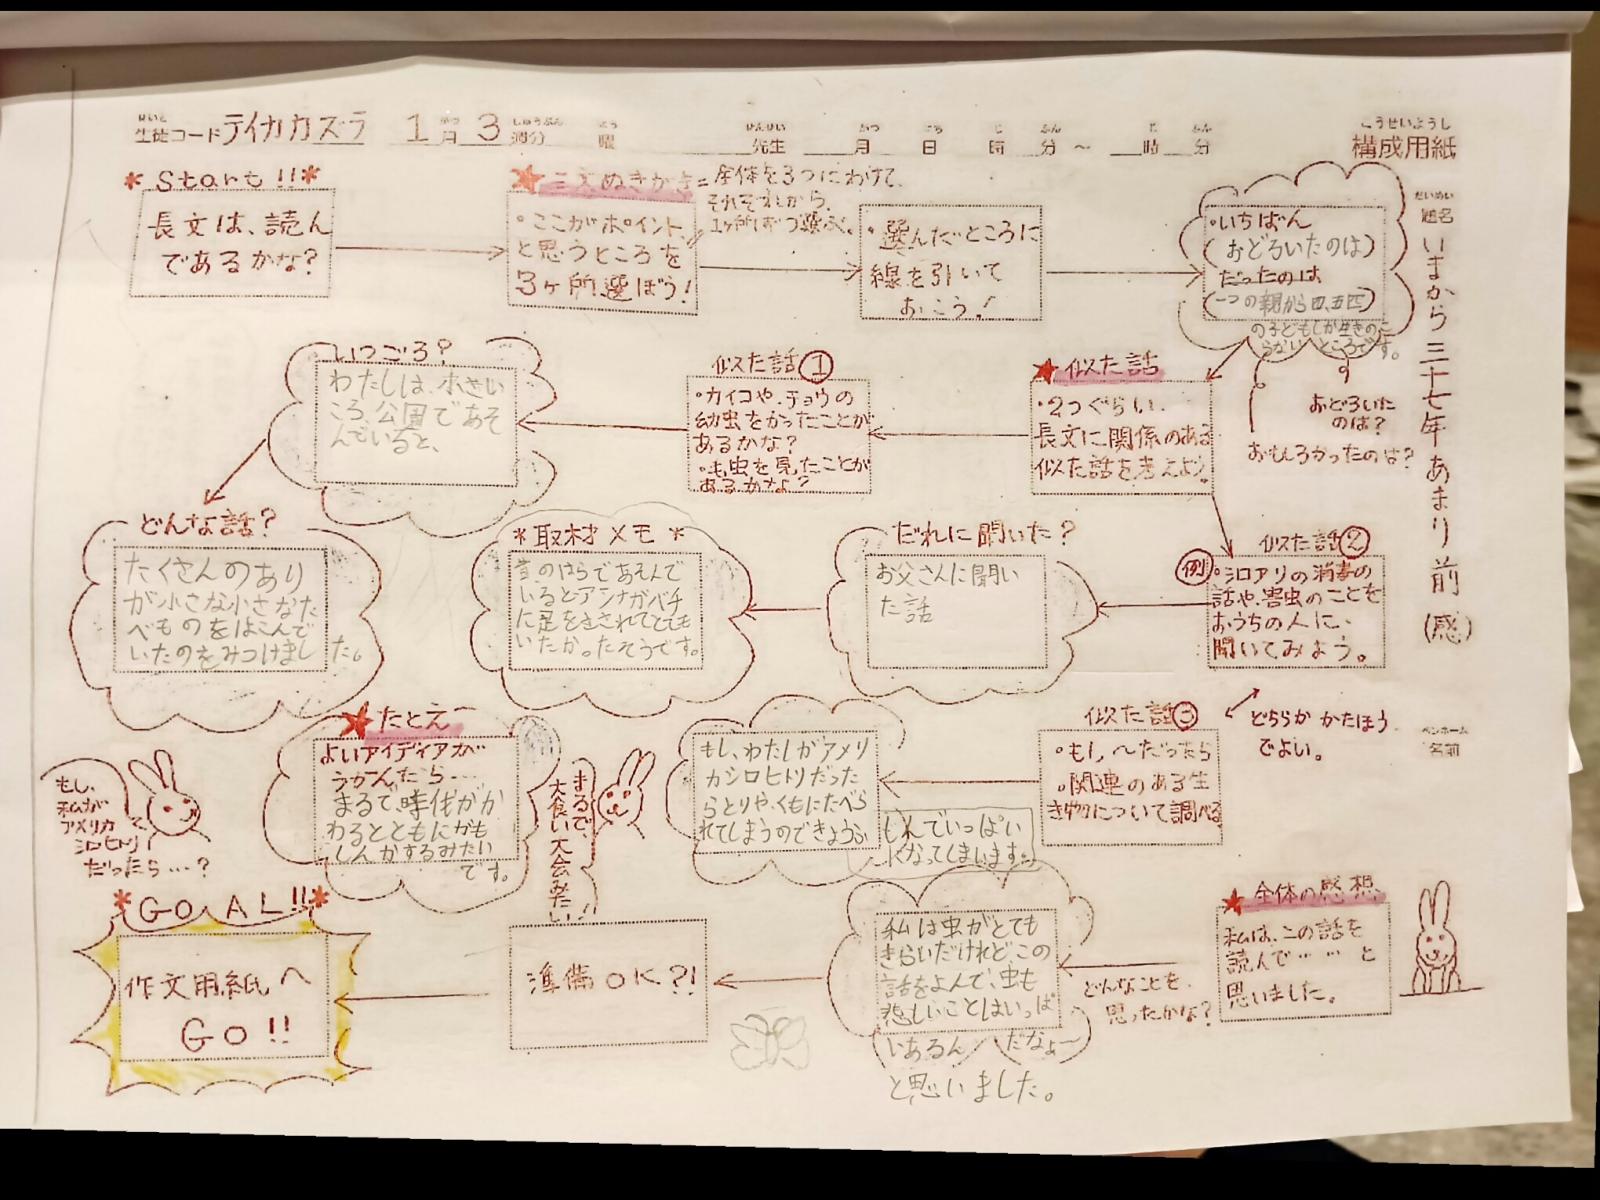 せいと がつ しゅうぶん よう せんせい がつ にち じ ふん じ ふん こうせいようし
生徒コード テイカカズラ 1月 3週分 曜 先生 月 日 時 分 ～ 時 分 構成用紙
だいめい
題名
いまから三十七年あまり前(感)
ペンネーム
名前
* Start!! *
長文は、読ん
であるかな?
★三文ぬきがき=全体を3つにわけて、
それぞれから、
1ヶ所ずつ選ぶ。
・ここがポイント、
と思うところを
3ヶ所選ぼう!
・選んだところに
線を引いて
おこう!
・いちばん
(おどろいたのは)
だったのは
(一つの親から四、五匹
の子どもしか生きのこ
らないところです。
おどろいた
のは?
おもしろかったのは?
★似た話
・2つぐらい、
長文に関係のある
似た話を考えよう。
似た話①
・カイコや、チョウの
幼虫をかったことが
あるかな?
・毛虫を見たことが
あるかな?
いつごろ?
わたしは、小さい
ころ、公園であそ
んでいると、
どんな話?
たくさんのあり
が小さな小さなた
べものをはこんで
いたのをみつけました。
似た話②
例
・シロアリの消毒の
話や、害虫のことを
おうちの人に、
聞いてみよう。
どちらかかたほう
でよい。
だれに聞いた?
お父さんに聞い
た話
*取材メモ*
昔、のはらであそんで
いるとアシナガバチ
に足をさされてとても
いたかったそうです。
似た話③
・もし、～だったら
・関連のある生
き物について調べる
もし、わたしがアメリ
カシロヒトリだった
らとりや、くもにたべら
れてしまうのできょうふ
しんでいっぱい
になってしまいます。
まるで、
大食い大会みたい!!
★たとえ
よいアイディアが
うかんだら…
まるで、時代がか
わるとともにがも
しんかするみたい
です。
もし、
私が
アメリカ
シロヒトリ
だったら…?
★全体の感想
私は、この話を
読んで……と
思いました。
どんなことを、
思ったかな?
私は虫がとても
きらいだけれど、この
話をよんで、虫も
悲しいことはいっぱ
いあるんだなぁ～
と思いました。
準備OK?!
*GOAL!!*
作文用紙へ
GO!!